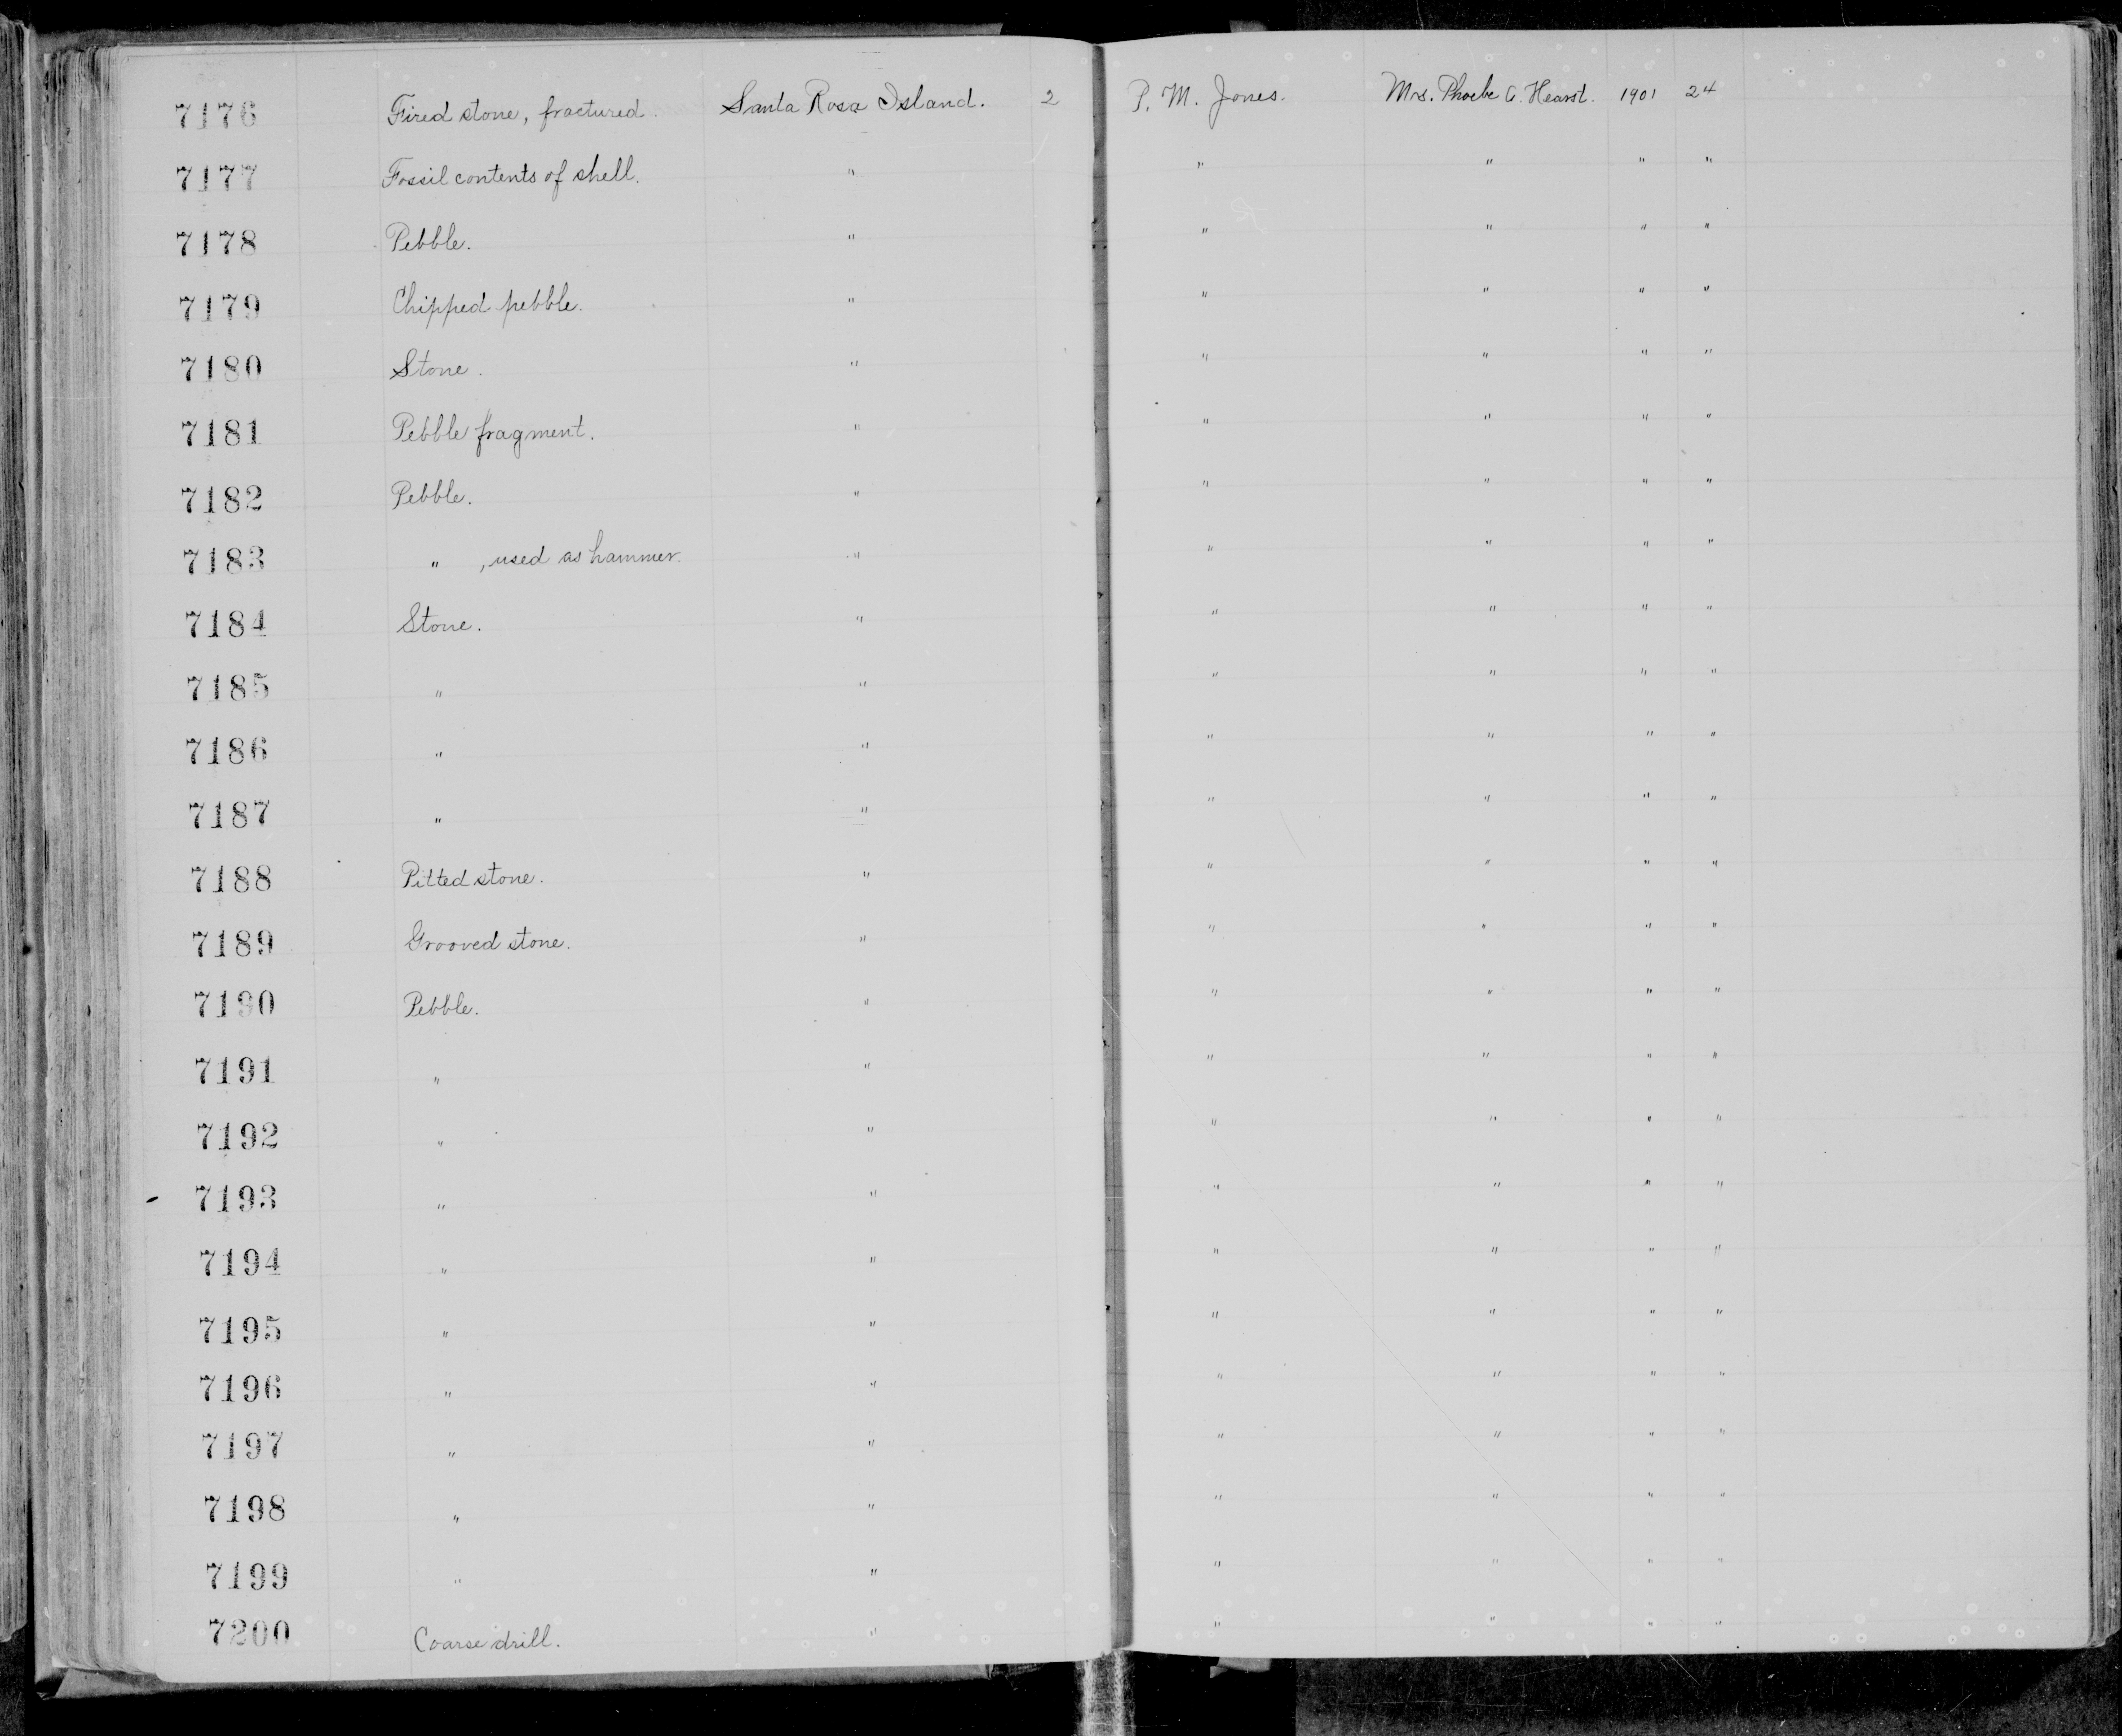 7176 Fired stone, fractured. Santa Rosa Island. 2 P. M. Jones. Mrs. Phoebe A. Hearst. 1901 24
7177 Fossil contents of shell. " " " " "
7178 Pebble. " " " " "
7179 Chipped pebble. " " " " "
7180 Stone. " " " " "
7181 Pebble fragment. " " " " "
7182 Pebble. " " " " "
7183 " , used as hammer. " " " " "
7184 Stone. " " " " "
7185 " " " " " "
7186 " " " " " "
7187 " " " " " "
7188 Pitted stone. " " " " "
7189 Grooved stone. " " " " "
7190 Pebble. " " " " "
7191 " " " " " "
7192 " " " " " "
7193 " " " " " "
7194 " " " " " "
7195 " " " " " "
7196 " " " " " "
7197 " " " " " "
7198 " " " " " "
7199 " " " " " "
7200 Coarse drill. " " " " "